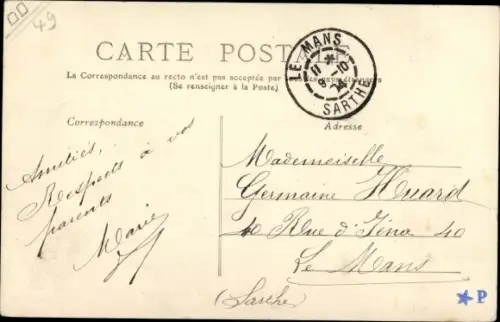 49
CARTE POSTALE
La Correspondance au recto n'est pas acceptée par tous les pays étrangers
(Se renseigner à la Poste)
LE MANS
SARTHE
Correspondance
Adresse
Amitiés,
Respects à vos
parents
Marie
Mademoiselle
Germaine Huard
40 Rue d'Iéna 40
Le Mans
(Sarthe)
P